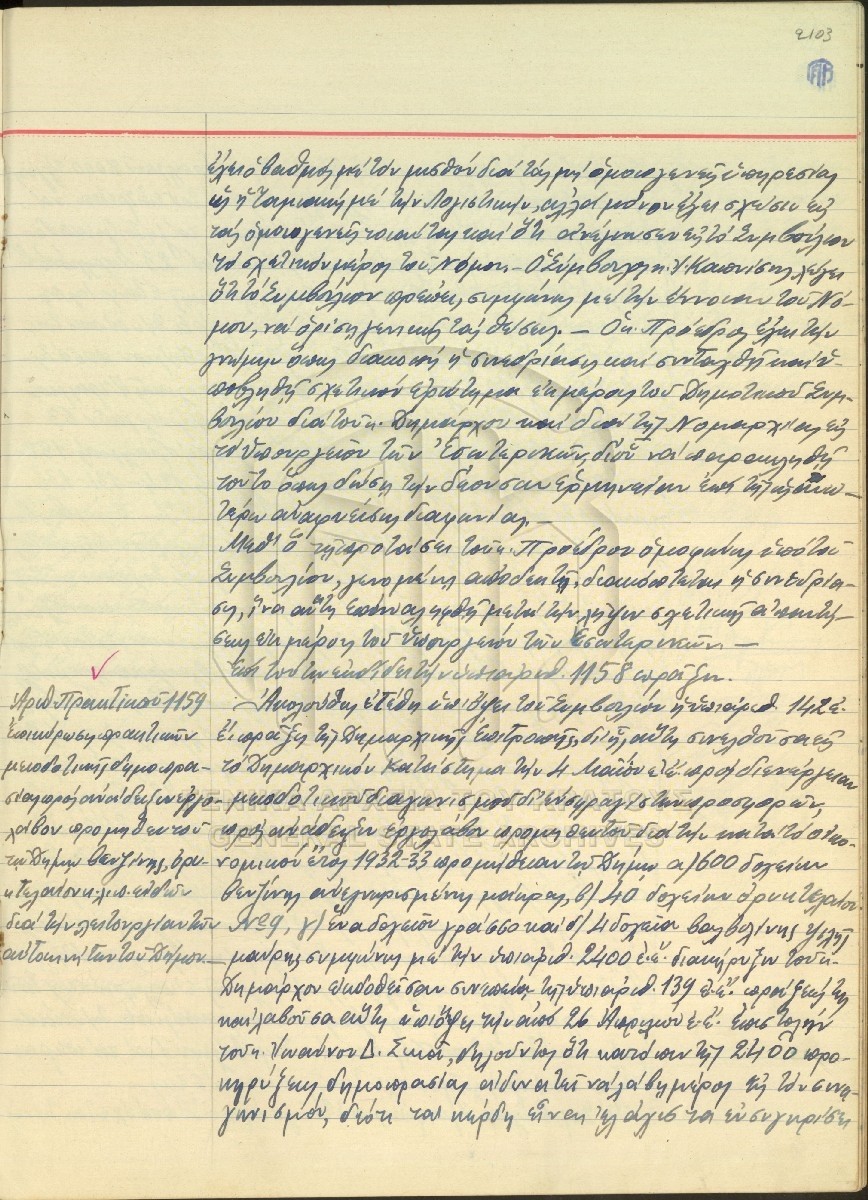 2103
ἔχει ὁ βαθμὸς μὲ τὸν μισθὸν διὰ τὰς μὴ ὁμοιογενεῖς ὑπηρεσίας
ὡς ἡ Ταμιακὴ μὲ τὴν Λογιστικὴν, ἀλλὰ μόνον ἔχει σχέσιν εἰς
τὰς ὁμοιογενεῖς τοιαύτας καὶ ὅτι ἀνέγνωσεν εἰς τὸ Συμβούλιον
τὸ σχετικὸν μέρος τοῦ Νόμου.– Ὁ Σύμβουλος κ. Καπνίσης λέγει
ὅτι τὸ Συμβούλιον πρέπει, συμφώνως μὲ τὴν ἔννοιαν τοῦ Νό-
μου, νὰ ὁρίσῃ γενικῶς τὰς θέσεις. – Ὁ κ. Πρόεδρος ἔχει τὴν
γνώμην ὅπως διακοπῇ ἡ συνεδρίασις καὶ συνταχθῇ καὶ ὑ-
ποβληθῇ σχετικὸν ἐρώτημα ἐκ μέρους τοῦ Δημοτικοῦ Συμ-
βουλίου διὰ τοῦ κ. Δημάρχου καὶ διὰ τῆς Νομαρχίας εἰς
τὸ Ὑπουργεῖον τῶν Ἐσωτερικῶν, δι' οὗ νὰ παρακληθῇ
τοῦτο ὅπως δώσῃ τὴν δέουσαν ἑρμηνείαν ἐπὶ τῆς ἀνω-
τέρω ἀναφυείσης διαφωνίας.–
Μεθ' ὃ τῇ προτάσει τοῦ κ. Προέδρου ὁμοφώνως ὑπὸ τοῦ
Συμβουλίου, γενομένης ἀποδεκτῆς, διακόπτεται ἡ συνεδρία-
σις, ἵνα αὕτη ἐπαναληφθῇ μετὰ τὴν λῆψιν σχετικῆς ἀπαντή-
σεως ἐκ μέρους τοῦ Ὑπουργείου τῶν Ἐσωτερικῶν. –
Ἐπὶ τούτῳ ἐκδίδει τὴν ὑπ' ἀριθ. 1158 πρᾶξιν.
Ἀριθ. Πρακτικοῦ 1159
Ἐπικύρωσις πρακτικῶν
μειοδοτικῆς δημοπρα-
σίας πρὸς ἀνάδειξιν ἐργο-
λάβου προμηθευτοῦ
τῷ Δήμῳ βενζίνης, ὀρυ-
κτελαίου κ.λ.π. εἰδῶν
διὰ τὴν λειτουργίαν τῶν
αὐτοκινήτων τοῦ Δήμου.–
Ἀκολούθως ἐτέθη ὑπ' ὄψει τοῦ Συμβουλίου ἡ ὑπ' ἀριθ. 142 ἐ.
ἔ. πρᾶξις τῆς Δημαρχιακῆς Ἐπιτροπῆς, δι' ἧς αὕτη συνελθοῦσα εἰς
τὸ Δημαρχιακὸν Κατάστημα τὴν 4 Μαΐου ἐ.ἔ. πρὸς διενέργειαν
μειοδοτικοῦ διαγωνισμοῦ δι' ἐνσφραγίστων προσφορῶν,
πρὸς ἀνάδειξιν ἐργολάβου προμηθευτοῦ διὰ τὴν κατὰ τὸ οἰκο-
νομικὸν ἔτος 1932-33 προμήθειαν τῷ Δήμῳ α) 600 δοχείων
βενζίνης ἀνεγνωρισμένης μάρκας, β) 40 δοχείων ὀρυκτελαίου
γ) ἓνα δοχεῖον γράσσο καὶ δ) 4 δοχεῖα βαλβολίνης
μαύρης συμφώνως μὲ τὴν ὑπ' ἀριθ. 2400 ἐ.ἔ. διακήρυξιν τοῦ κ.
Δημάρχου ἐκδοθεῖσαν συνεπείᾳ τῆς ὑπ' ἀριθ. 139 ἐ.ἔ. πράξεώς της
καὶ λαβοῦσα αὕτη ὑπ' ὄψει τὴν ἀπὸ 26 Ἀπριλίου ἐ.ἔ. ἐπιστολὴν
τοῦ κ. Ἰωάννου Δ. δηλοῦντος ὅτι κατόπιν τῆς 2400 προ-
κηρύξεως δημοπρασίας ἀδυνατεῖ νὰ λάβῃ μέρος εἰς τὸν συνα-
γωνισμόν, διότι τὰ κέρδη εἶναι ἐλάχιστα ἐν συγκρίσει
ΓΕΝΙΚΑ ΑΡΧΕΙΑ ΤΟΥ ΚΡΑΤΟΥΣ
GENERAL STATE ARCHIVES